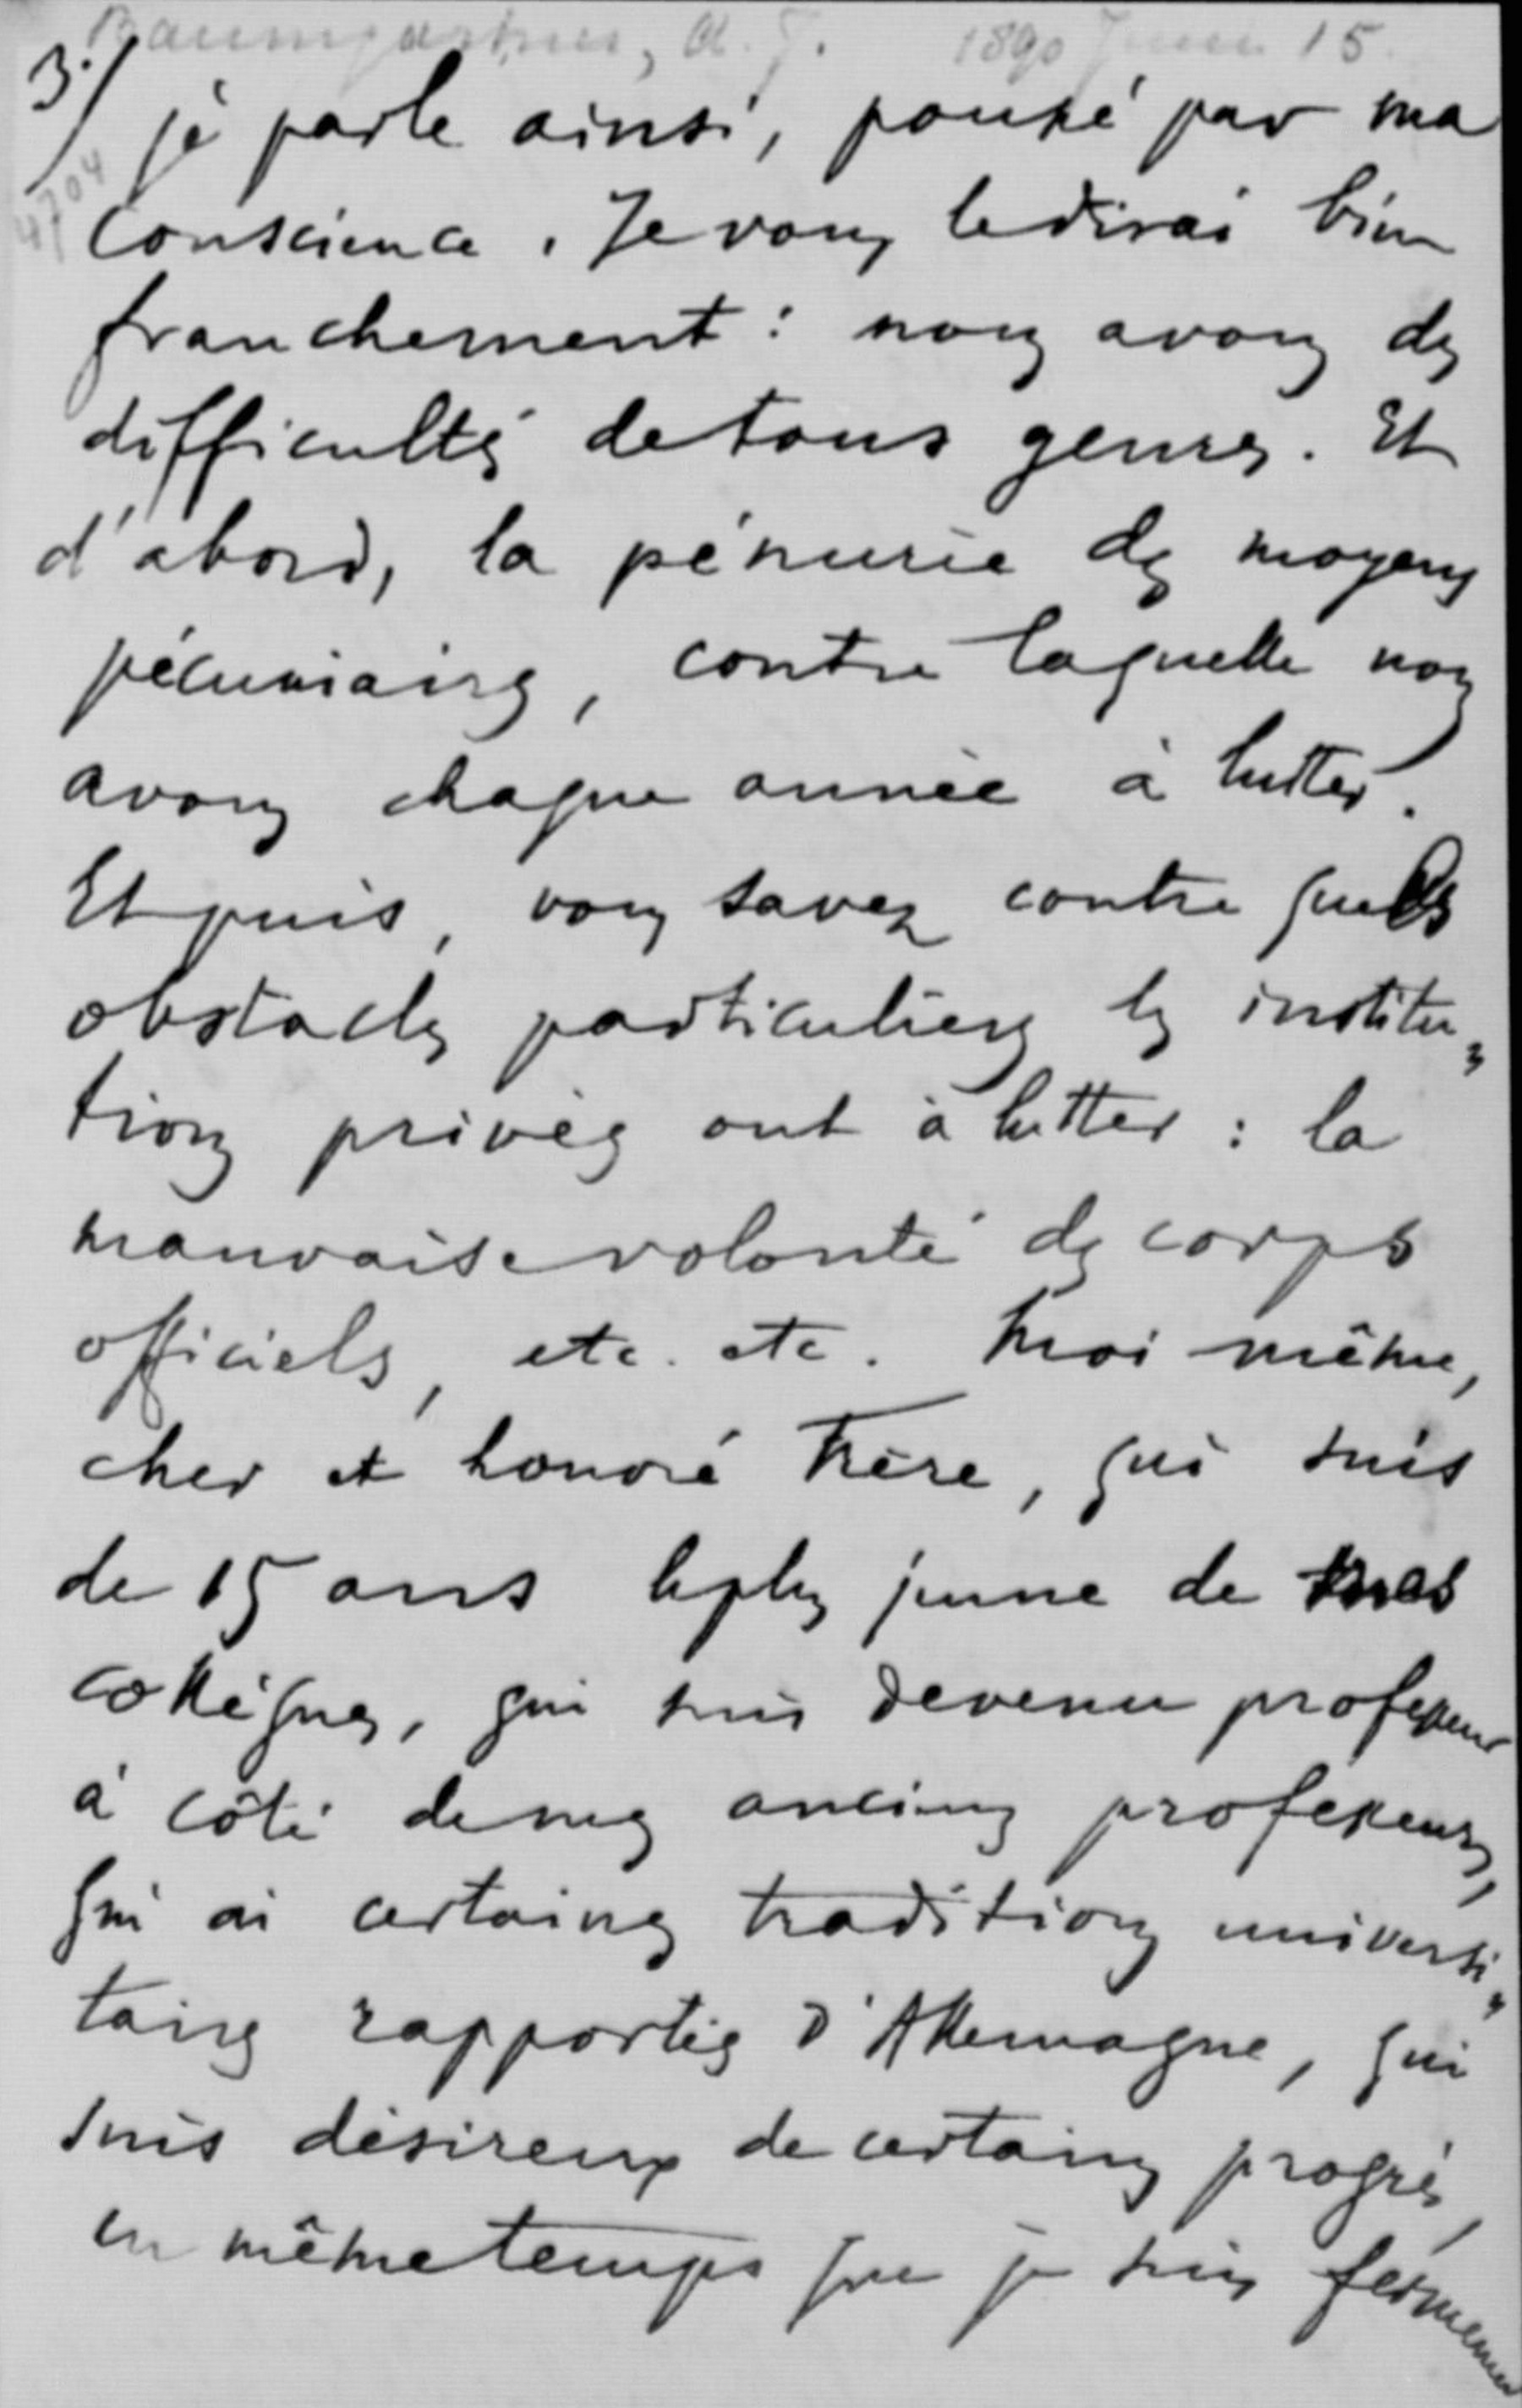 Baumgartner, A. J. 1890 Juin 15.
3./
4704
je parle ainsi, poussé par ma
conscience. Je vous le dirai bien
franchement: nous avons des
difficultés de tous genres. Et
d'abord, la pénurie des moyens
pécuniaires, contre laquelle nous
avons chaque année à lutter.
Et puis, vous savez contre quels
obstacles particuliers les institu„
tions privées ont à lutter: la
mauvaise volonté des corps
officiels, etc. etc. Moi même,
cher et honoré Frère, qui suis
de 15 ans le plus jeune de mes
collègues, qui suis devenu professeur
à côté de mes anciens professeurs,
qui ai certaines traditions universi„
taires rapportées d'Allemagne, qui
suis désireux de certains progrès,
en même temps que je suis fermement